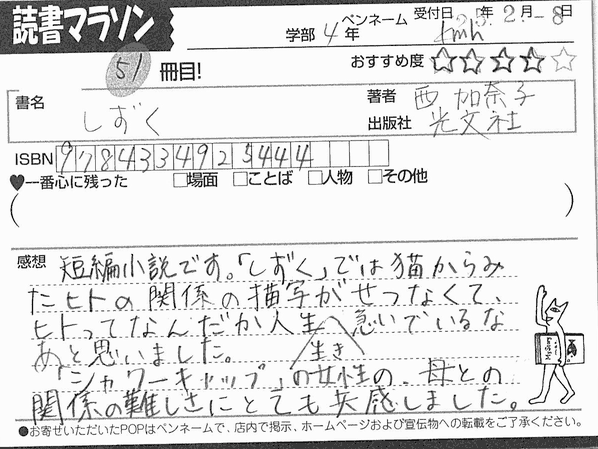 読書マラソン
学部 4年 ペンネーム tmh 受付日 25年2月-8日
51 冊目!
おすすめ度 ☆☆☆☆☆
書名 しずく
著者 西 加奈子
出版社 光文社
ISBN 9784334925444
♥一番心に残った □場面 □ことば □人物 □その他
( )
感想 短編小説です。「しずく」では猫からみ
たヒトの関係の描写がせつなくて、
ヒトってなんだか人生へ急いでいるな
生き
あと思いました。
「シャワーキャップ」の女性の、母との
関係の難しさにとても共感しました。
●お寄せいただいたPOPはペンネームで、店内で掲示、ホームページおよび宣伝物への転載をご了承ください。